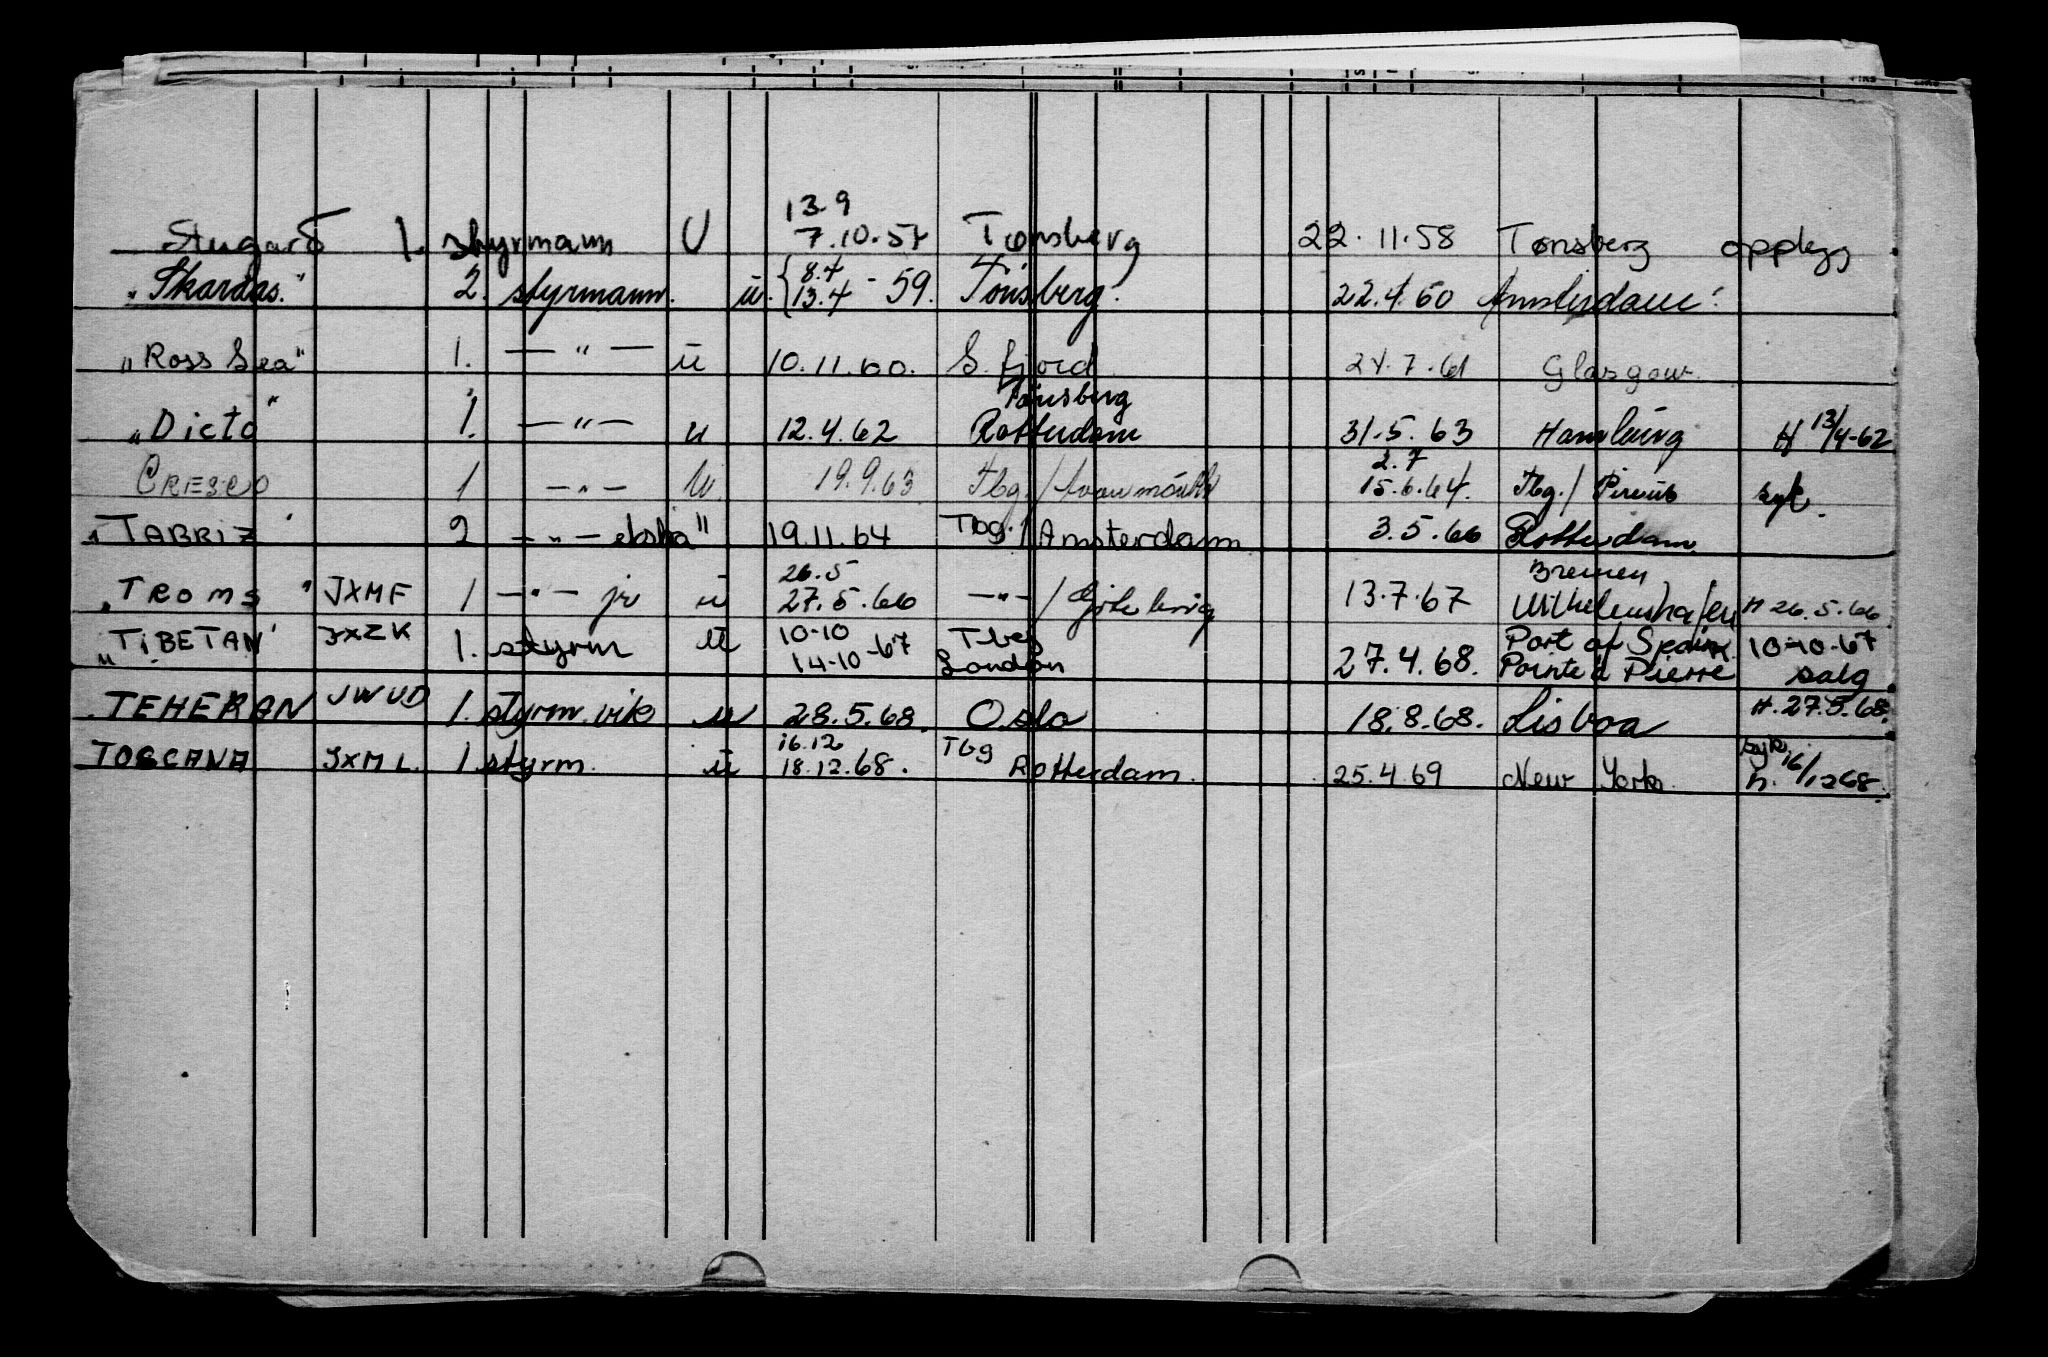 13.9
Stugard 1. styrmann U 7.10.57 Tønsberg 22.11.58 Tønsberg opplegg
"Skardas." 2. styrmann. u. {8.4 13.4 - 59. Tönsberg. 22.4.60 Amsterdam.
"Ross Sea" 1. — " — u 10.11.60. S. fjord 24.7.61 Glasgow.
Tönsberg
"Dicto" 1. — " — u 12.4.62 Rotterdam 31.5.63 Hamburg H 13/4-62
2.7
CRESCO 1 — " — u 19.9.63 Tbg./ 15.6.64. Tbg./ Pireus syk.
"TABRIZ" 2 — " — ekstra " 19.11.64 Tbg./Amsterdam 3.5.66 Rotterdam
26.5 Bremen
"TROMS" JXMF 1 — " — jr u 27.5.66 — " — / Göteborg 13.7.67 Wilhelmshafen H 26.5.66
"TIBETAN" JXZK 1. styrm u 10-10 14-10-67 Tbg London 27.4.68. Port of Spain Pointe à Pierre 10-10-67 salg
TEHERAN JWUD 1. styrm. vik u 28.5.68. Oslo 18.8.68. Lisboa H. 27.5.68.
TOSCANA JXML 1. styrm. u 16.12 18.12.68. Tbg Rotterdam. 25.4.69 New York. syk. h. 16/12 68.